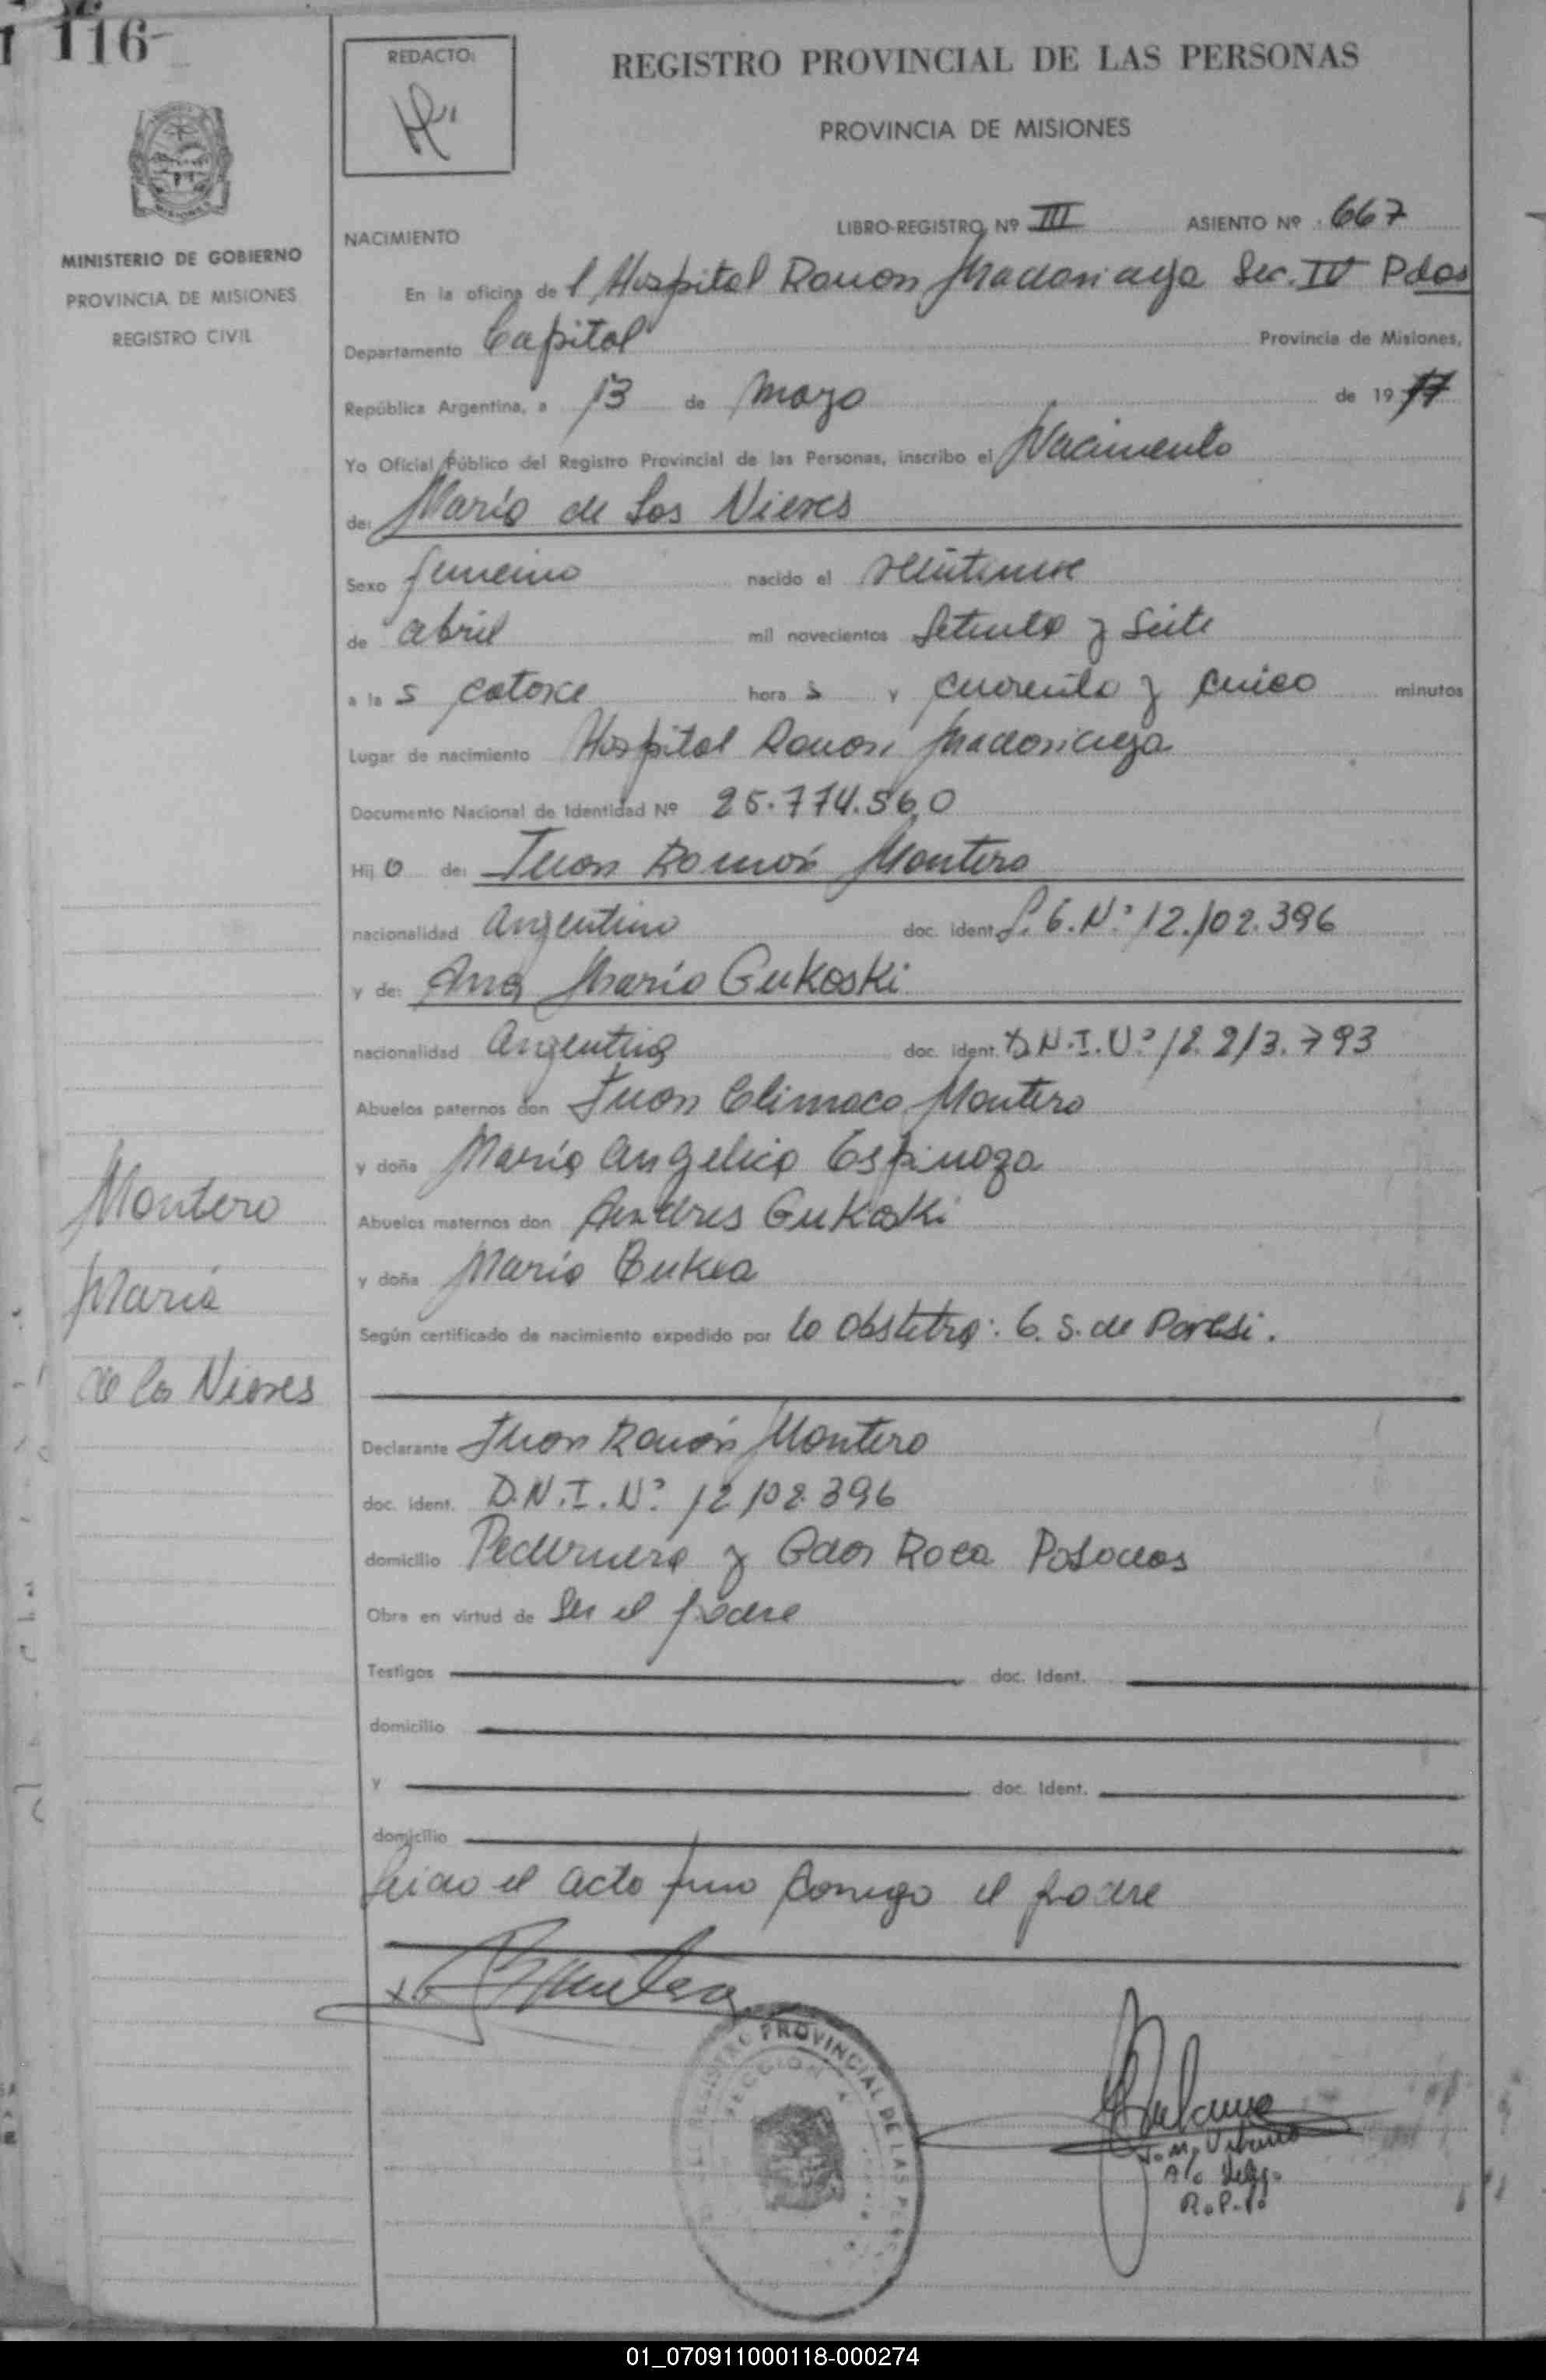 116-
REDACTO:
REGISTRO PROVINCIAL DE LAS PERSONAS
PROVINCIA DE MISIONES
MINISTERIO DE GOBIERNO
PROVINCIA DE MISIONES
REGISTRO CIVIL
LIBRO-REGISTRO Nº III ASIENTO Nº 667
NACIMIENTO
En la oficina del Hospital Ramon Madariaga Sec. IV Pdas
Departamento Capital Provincia de Misiones,
República Argentina, a 13 de Mayo de 1977
Yo Oficial Público del Registro Provincial de las Personas, inscribo el Nacimiento
de: María de Las Nieves
Sexo femenino nacido el veintinueve
de abril mil novecientos Setenta y Siete
a las catorce horas y cuarenta y cinco minutos
Lugar de nacimiento Hospital Ramon Madariaga
Documento Nacional de Identidad Nº 25.774.560
Hijo de: Juan Ramón Montero
nacionalidad Argentino doc. ident. N.º 12.102.396
y de: Ana María Gukoski
nacionalidad Argentina doc. ident. D.N.I.N.º 12.213.793
Abuelos paternos don Juan Climaco Montero
y doña María Angelica Espinoza
Abuelos maternos don Andres Gukoski
y doña María
Según certificado de nacimiento expedido por la Obstetra: S. de Paresi.
Montero
María
de las Nieves
Declarante Juan Ramón Montero
doc. ident. D.N.I.N.º 12.102.396
domicilio Pedernera y Gdor Roca Posadas
Obra en virtud de Ser el padre
Testigos doc. ident.
domicilio
y doc. ident.
domicilio
Leido el acta firma conmigo el padre
REGISTRO PROVINCIAL DE LAS PERS
SECCION
R.P.P.
01_070911000118-000274